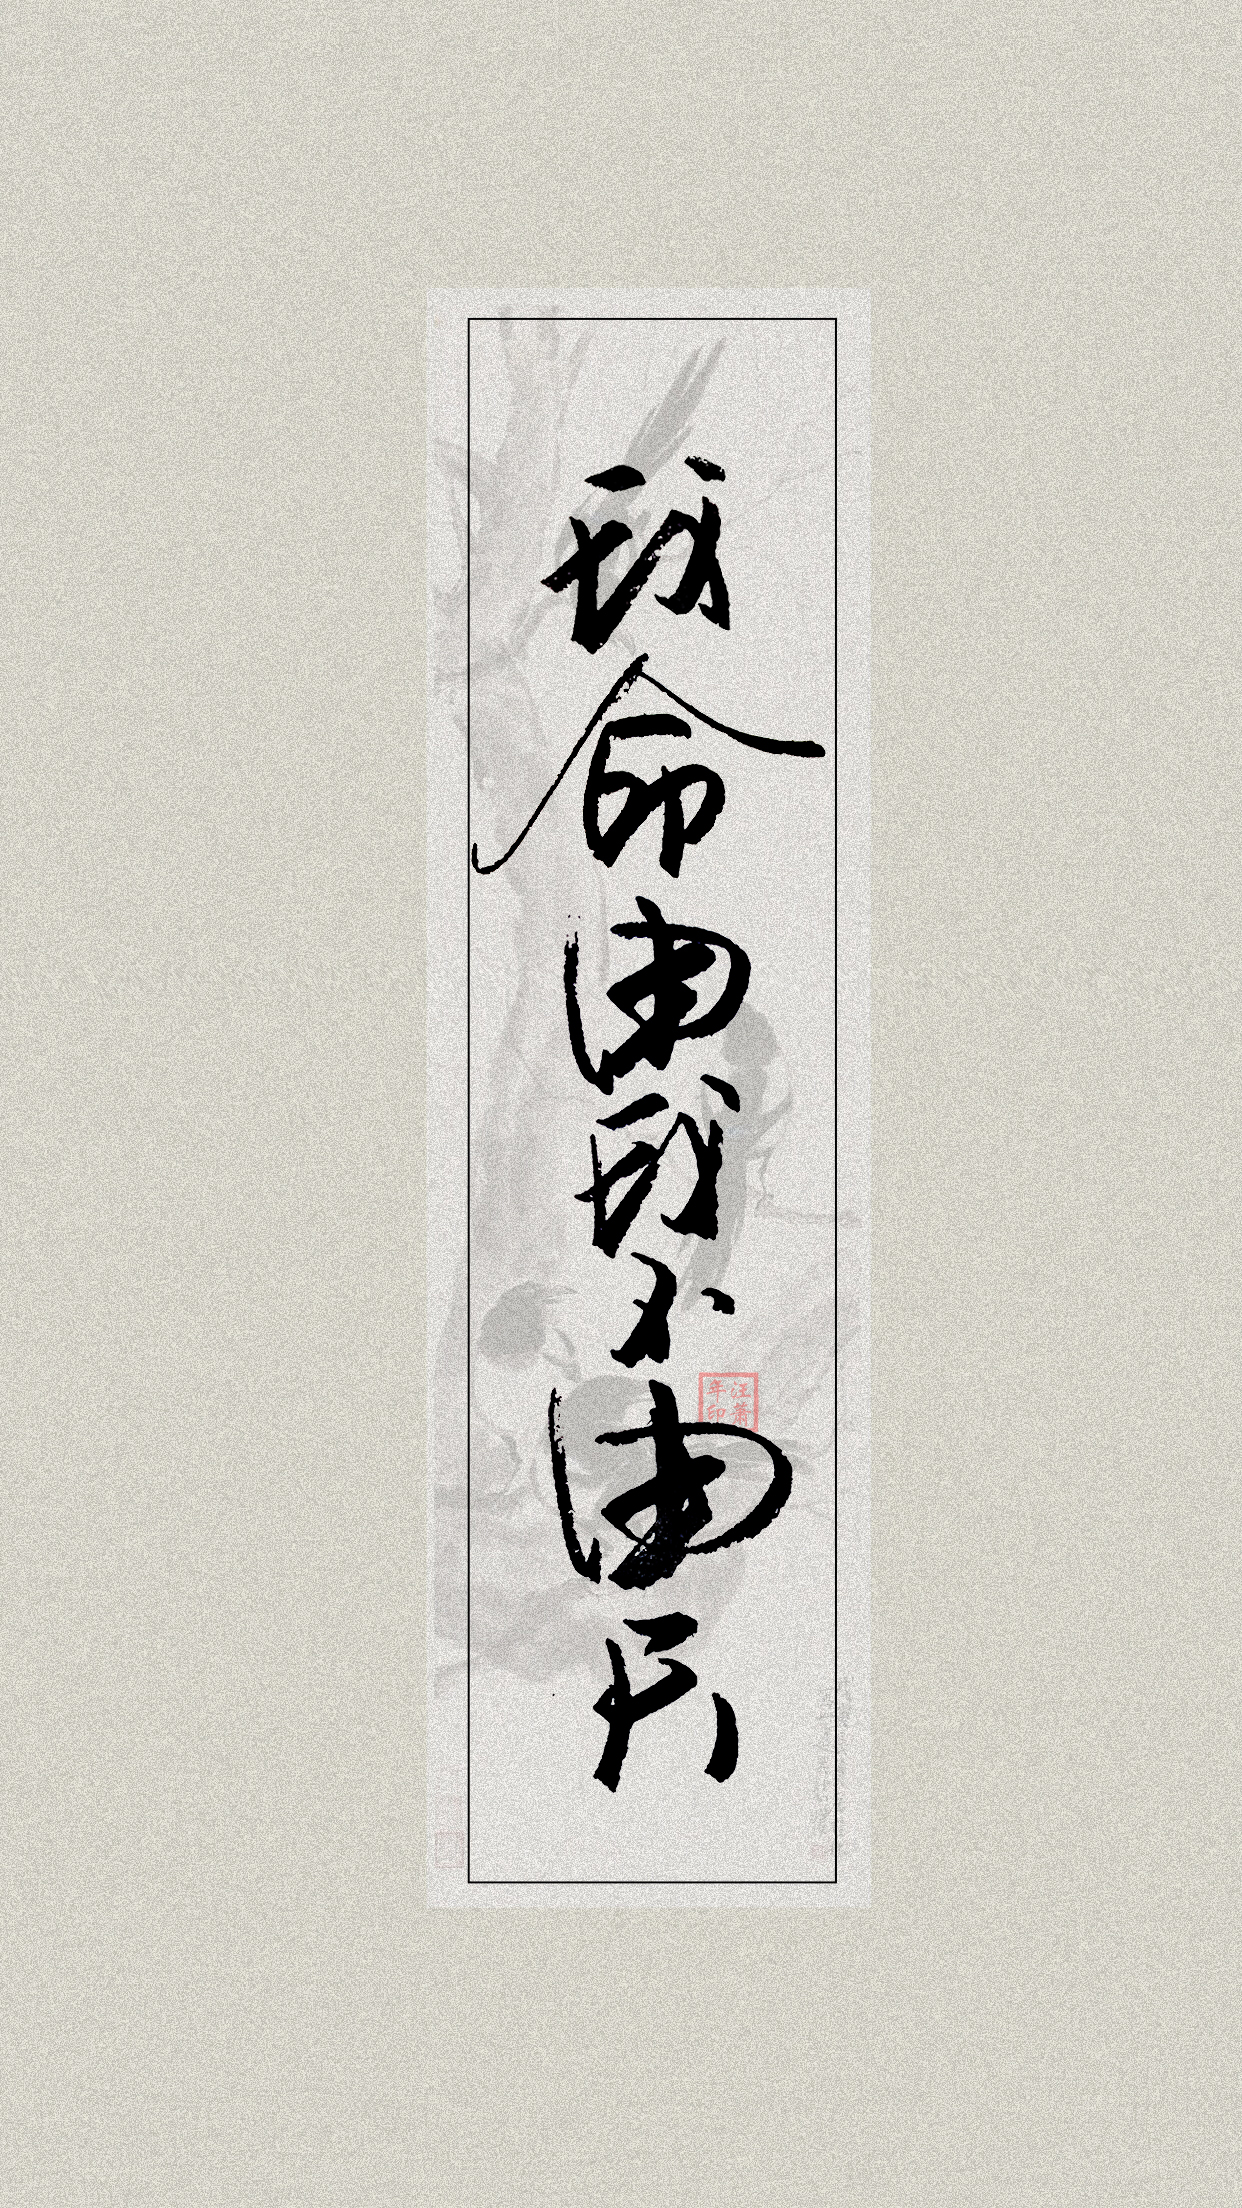 我命由我不由天
汪萧年印